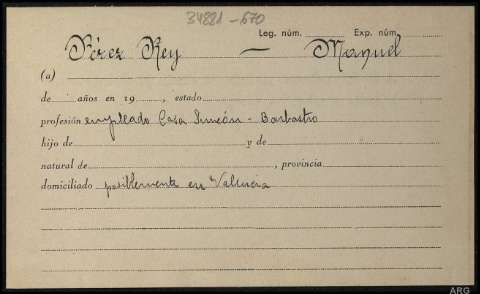 34881-670
Leg. núm. Exp. núm.
Pérez Rey — Manuel
(a)
de años en 19 , estado
profesión empleado Casa Simeón - Barbastro
hijo de y de
natural de , provincia
domiciliado posiblemente en Valencia
ARG